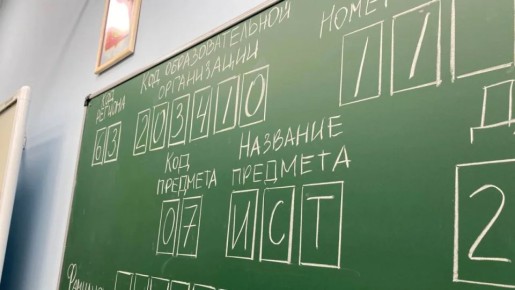 КОД РЕГИОНА
63
КОД ОБРАЗОВАТЕЛЬНОЙ
ОРГАНИЗАЦИИ
203410
НОМЕР
11
КОД
ПРЕДМЕТА
07
НАЗВАНИЕ
ПРЕДМЕТА
ИСТ
Д
2